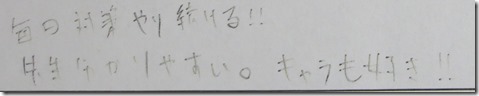 毎回対策やり続ける!!
先生分かりやすい。キャラも好き!!